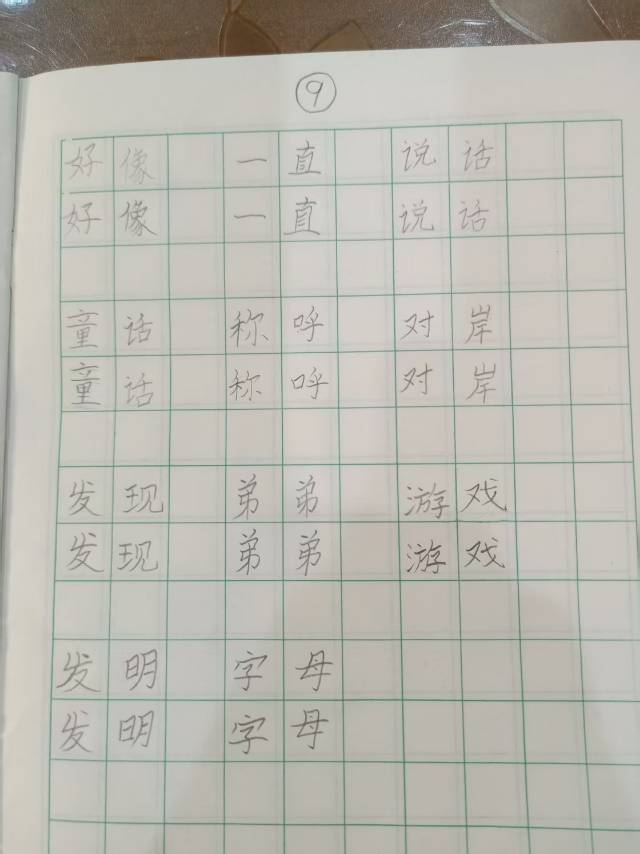 9
好像 一直 说话
好像 一直 说话
童话 称呼 对岸
童话 称呼 对岸
发现 弟弟 游戏
发现 弟弟 游戏
发明 字母
发明 字母